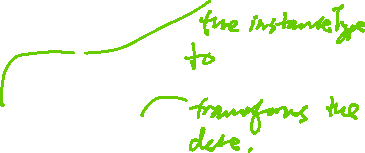 the instanceType
to
transforms the
date.